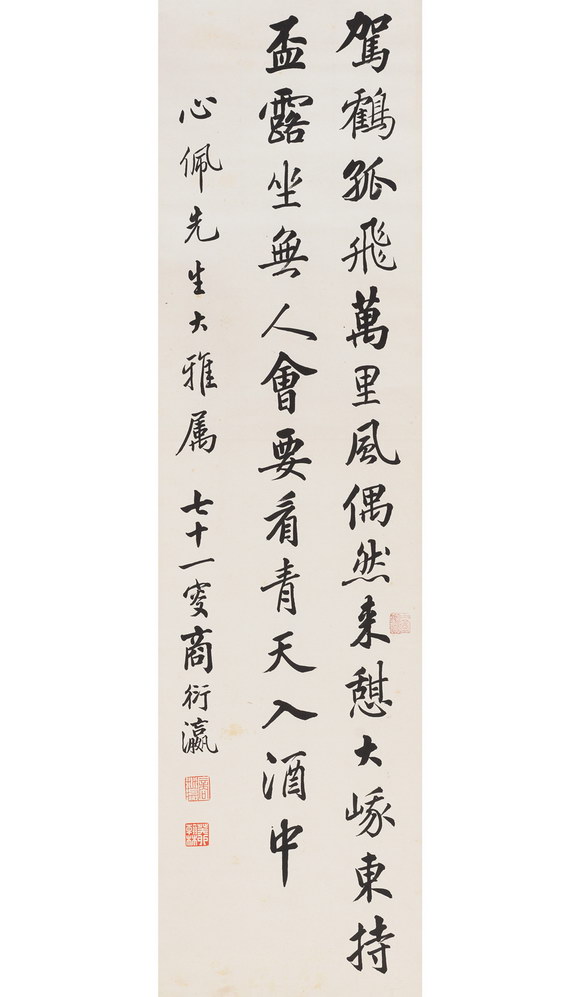 駕鶴孤飛萬里風偶然来憇大峩東持
盃露坐無人會要看青天入酒中
心佩先生大雅属 七十一叟商衍瀛